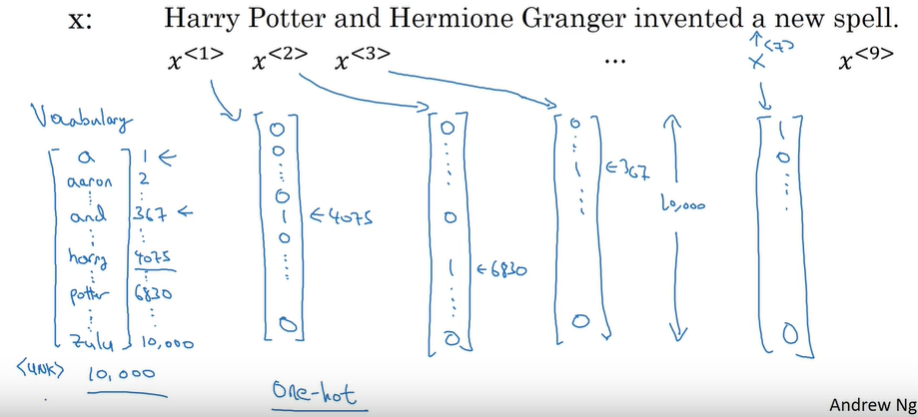 x: Harry Potter and Hermione Granger invented a new spell.
x<1> x<2> x<3> ... x<7> x<9>
Vocabulary
a 1 ←
aaron 2
⋮
and 367 ←
⋮
harry 4075
⋮
potter 6830
⋮
zulu 10,000
<UNK> 10,000
0
0
⋮
0
1 ←4075
0
⋮
0
0
⋮
0
1 ←6830
⋮
0
0
⋮
1 ←367
⋮
0
10,000
1
0
⋮
0
One-hot
Andrew Ng